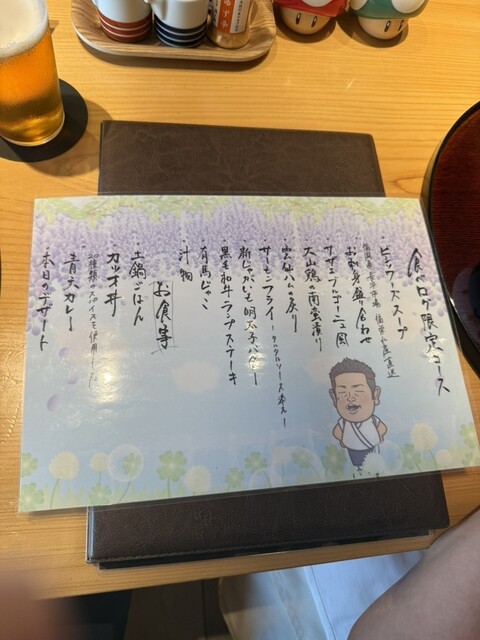 食べログ限定コース
・ビシソワーズスープ
福岡県長浜市場 福栄水産直送
・お刺身盛り合わせ
・サザエブルゴーニュ風
・大山鶏の南蛮漬り
・雲仙ハムの炙り
・サーモンフライ -タルタルソース添え-
・新じゃがいも明太子バター
・黒毛和牛ランプステーキ
・有馬じゃこ
・汁物
お食事
・土鍋ごはん
・カツオ丼
20種類のスパイスを使用した
・青犬カレー
・本日のデザート